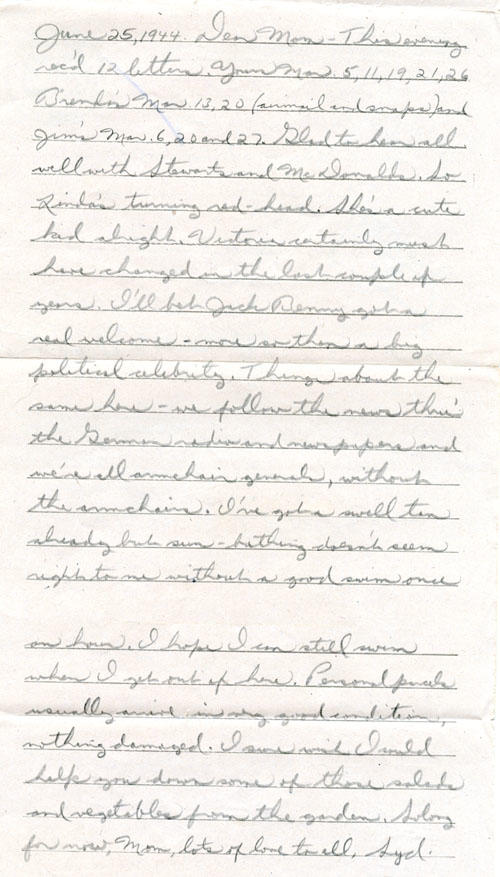 June 25, 1944. Dear Mom - This evening
rec'd 12 letters. Yours Mar. 5, 11, 19, 21, 26
Brenda's Mar. 13, 20 (airmail and snaps) and
Jim's Mar. 6, 20 and 27. Glad to hear all
well with Stewarts and McDonalds. So
Linda's turning red-head. She's a cute
kid alright. Victoria certainly must
have changed in the last couple of
years. I'll bet Jack Benny got a
real welcome - more so than a big
political celebrity. Things about the
same here - we follow the news thru'
the German radio and newspapers and
we're all armchair generals, without
the armchairs. I've got a swell tan
already but sun-bathing doesn't seem
right to me without a good swim once
an hour. I hope I can still swim
when I get out of here. Personal parcels
usually arrive in very good condition,
nothing damaged. I sure wish I could
help you down some of those salads
and vegetables from the garden. So long
for now, Mom, lots of love to all, Syd.